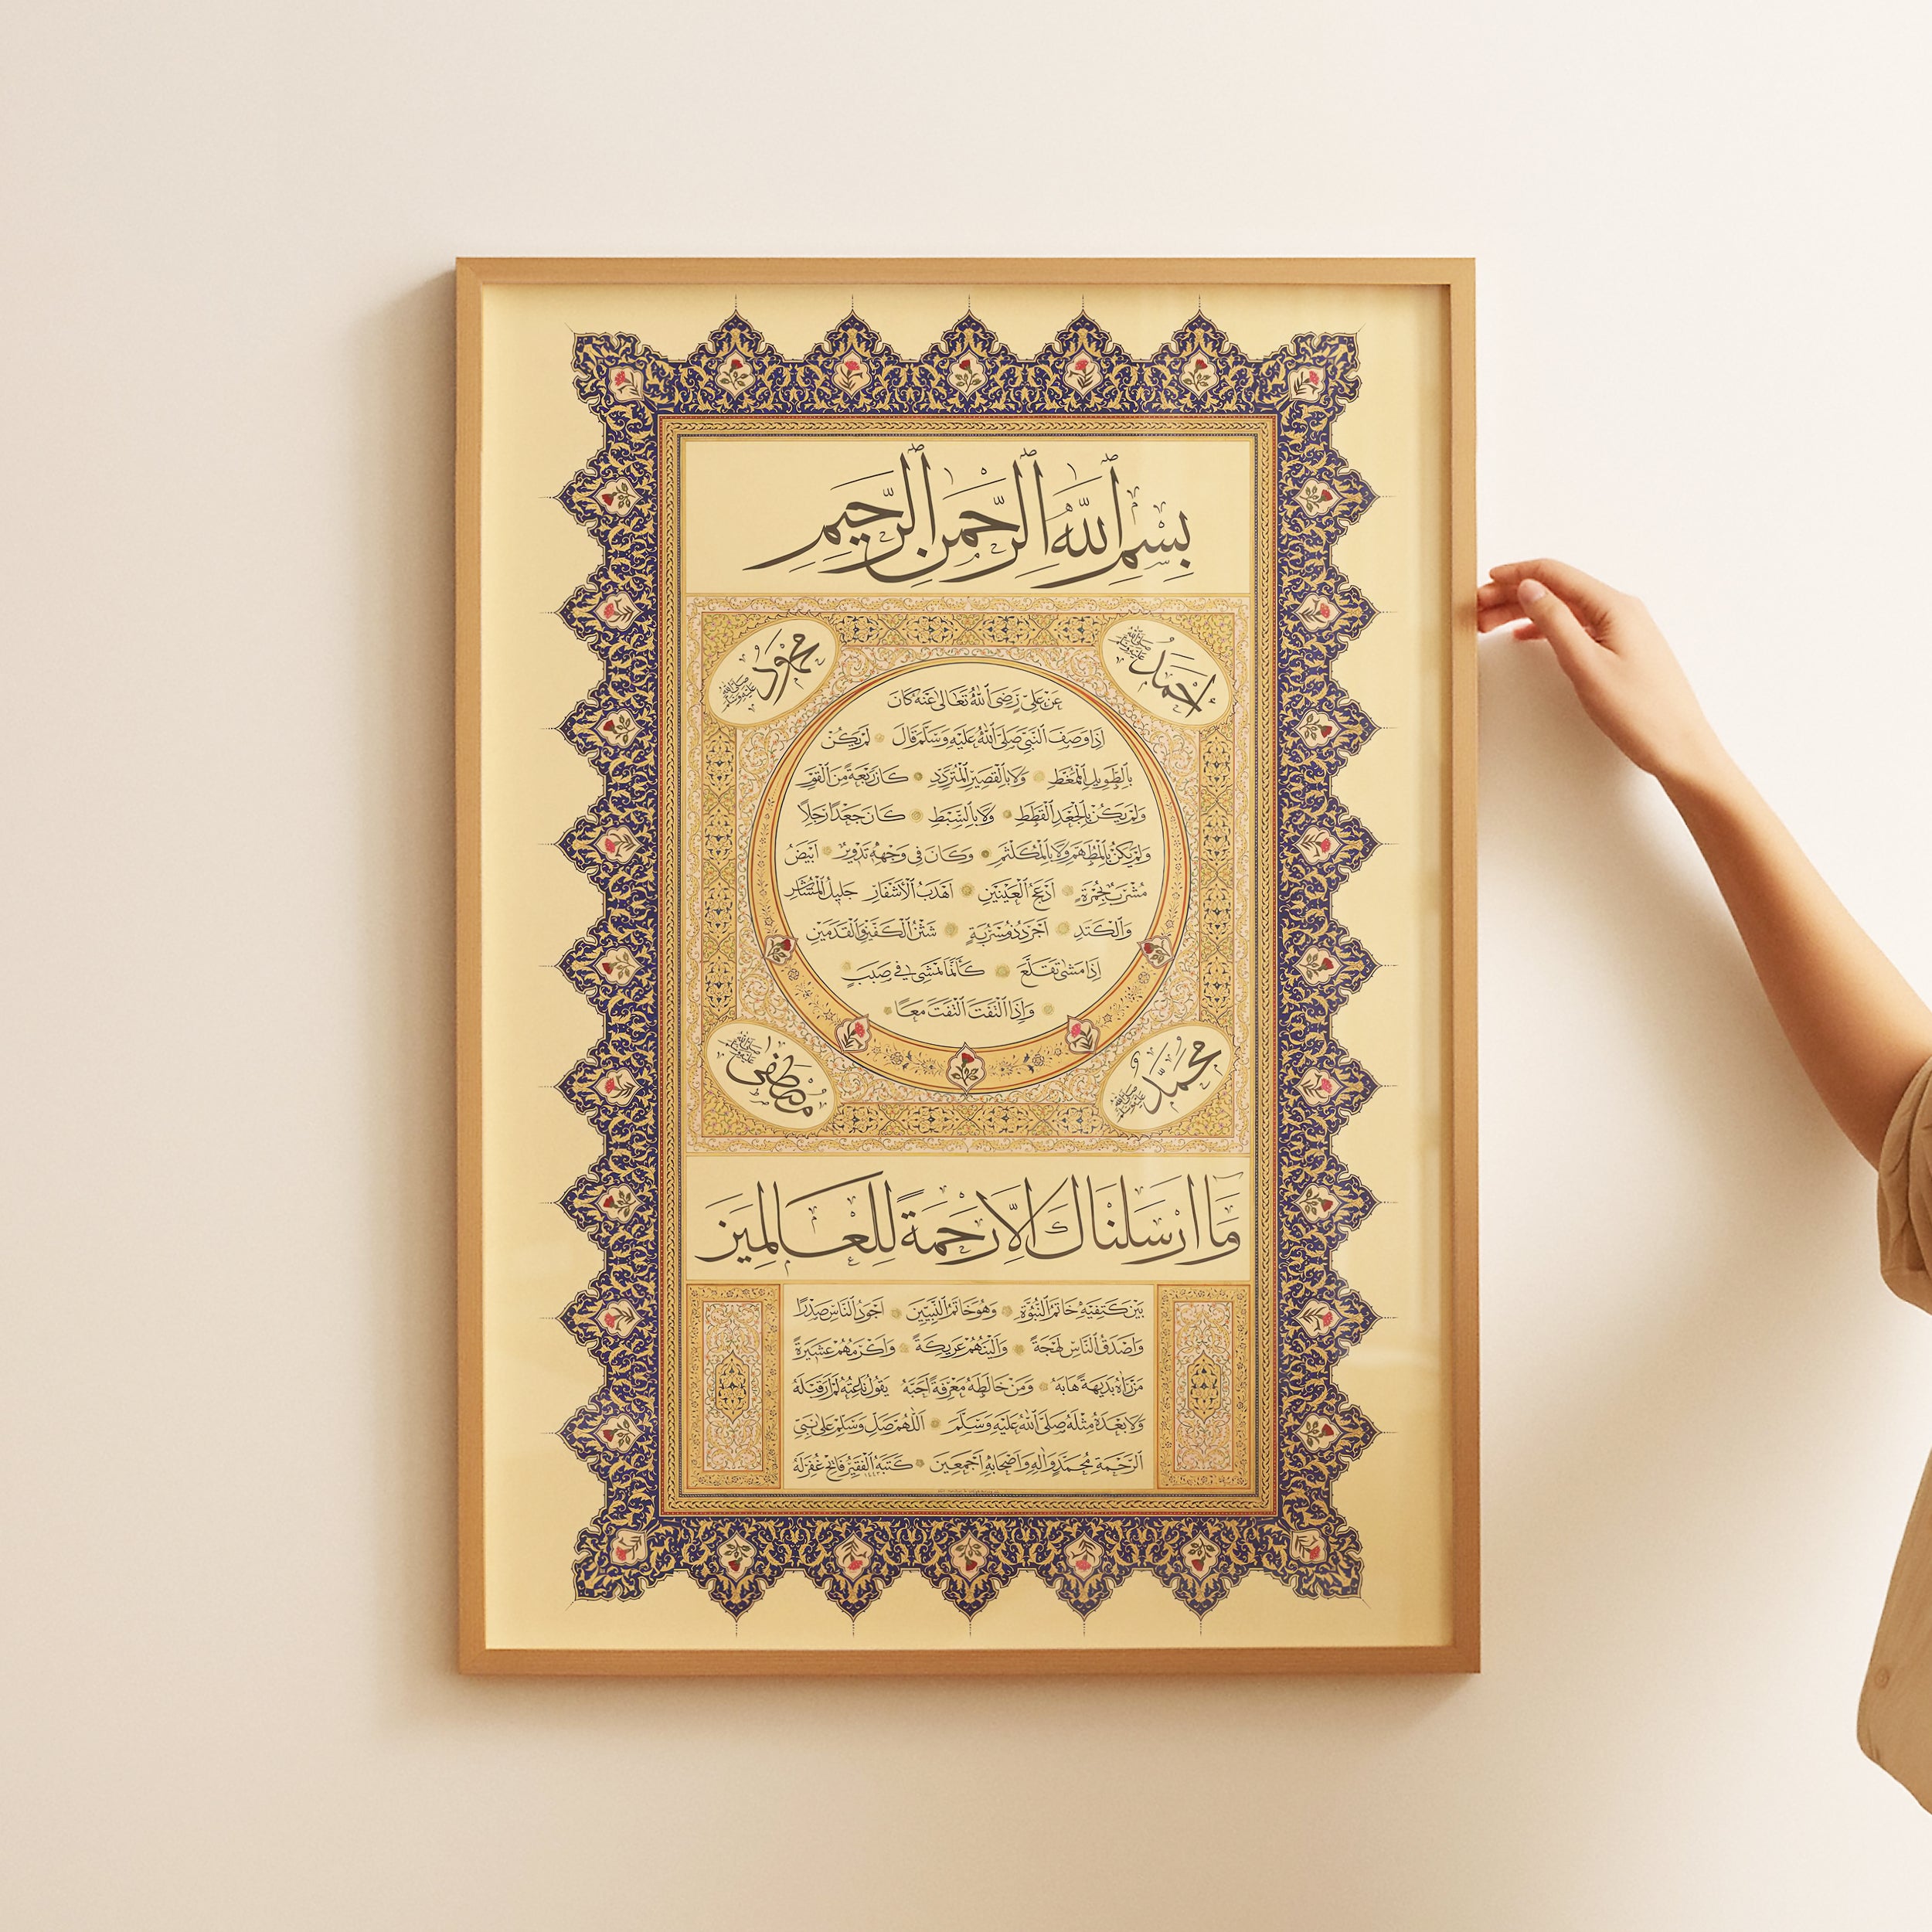 بسم الله الرحمن الرحيم
احمد صلى الله عليه وسلم
محمود صلى الله عليه وسلم
عن علي رضي الله تعالى عنه كان
اذا وصف النبي صلى الله عليه وسلم قال لم يكن
بالطويل الممغط ولا بالقصير المتردد كان ربعة من القوم
ولم يكن بالجعد القطط ولا بالسبط كان جعدا رجلا
ولم يكن بالمطهم ولا بالمكلثم وكان في وجهه تدوير ابيض
مشرب بحمرة ادعج العينين اهدب الاشفار جليل المشاش
والكتد اجرد ذو مسربة شثن الكفين والقدمين
اذا مشى تقلع كأنما يمشي في صبب
واذا التفت التفت معا
محمد صلى الله عليه وسلم
مصطفى صلى الله عليه وسلم
وما ارسلناك الا رحمة للعالمين
بين كتفيه خاتم النبوة وهو خاتم النبيين اجود الناس صدرا
واصدق الناس لهجة والينهم عريكة واكرمهم عشيرة
من رآه بديهة هابه ومن خالطه معرفة احبه يقول ناعته لم ار قبله
ولا بعده مثله صلى الله عليه وسلم اللهم صل وسلم على نبي
الرحمة محمد وآله واصحابه اجمعين كتبه الفقير غفر له